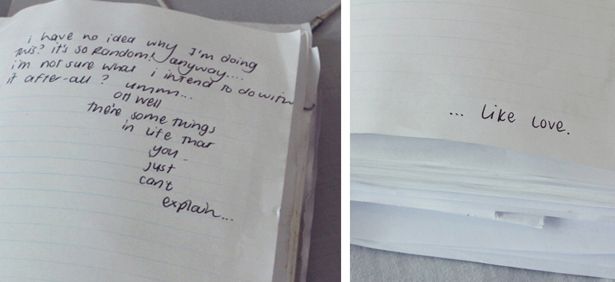 i have no idea why I'm doing
this? it's so Random! anyway....
i'm not sure what i intend to do with
it after-all? umm...
oh well
there some things
in life that
you
just
can't
explain...
... like love.